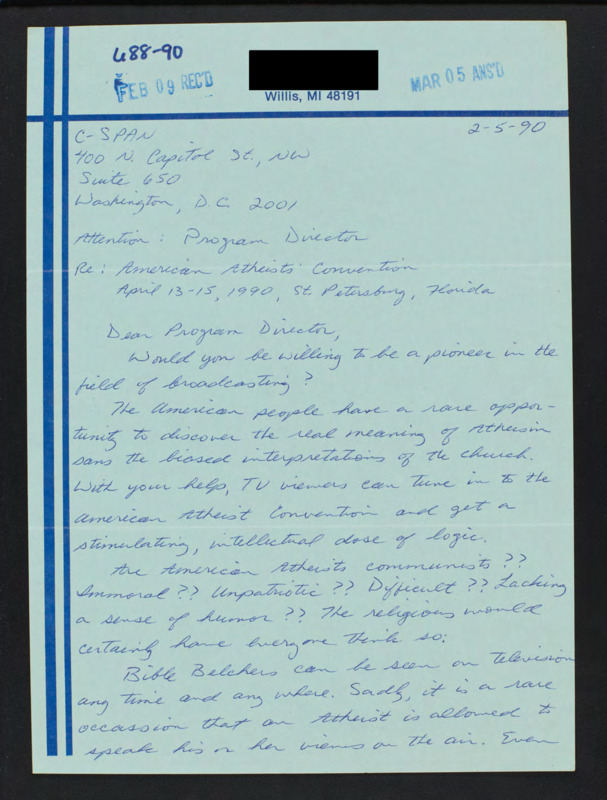 688-90
FEB 09 REC'D
MAR 05 ANS'D
Willis, MI 48191
2-5-90
C-SPAN
400 N. Capitol St., NW
Suite 650
Washington, D.C. 2001
Attention: Program Director
Re: American Atheists Convention
April 13-15, 1990, St Petersburg, Florida
Dear Program Director,
Would you be willing to be a pioneer in the
field of broadcasting?
The American people have a rare oppor-
tunity to discover the real meaning of Atheism
sans the biased interpretations of the church.
With your help, TV viewers can tune in to the
American Atheist Convention and get a
stimulating, intellectual dose of logic.
Are American Atheists communists??
Immoral?? Unpatriotic?? Difficult?? Lacking
a sense of humor?? The religious would
certainly have everyone think so.
Bible Belchers can be seen on television
any time and any where. Sadly, it is a rare
occassion that an Atheist is allowed to
speak his or her views on the air. Even